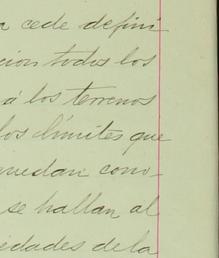 a cede defini
cion todos los
á los terrenos
los límites que
quedan cono-
se hallan al
iedades de la